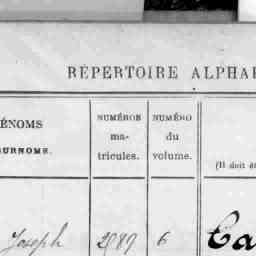 RÉPERTOIRE ALPHA
ÉNOMS
SURNOMS.
NUMÉROS
ma-
tricules.
NUMÉRO
du
volume.
(Il doit
Joseph 2987 6 Ca